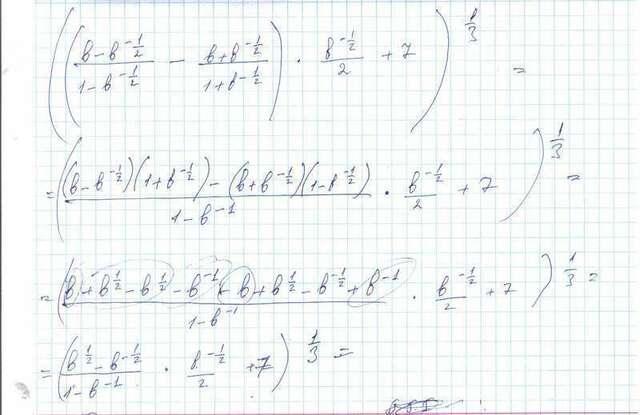 ((\frac{b-b^{-\frac{1}{2}}}{1-b^{-\frac{1}{2}}} - \frac{b+b^{-\frac{1}{2}}}{1+b^{-\frac{1}{2}}}) · \frac{b^{-\frac{1}{2}}}{2} + 7)^{\frac{1}{3}} =
= (\frac{(b-b^{-\frac{1}{2}})(1+b^{-\frac{1}{2}})-(b+b^{-\frac{1}{2}})(1-b^{-\frac{1}{2}})}{1-b^{-1}} · \frac{b^{-\frac{1}{2}}}{2} + 7)^{\frac{1}{3}} =
= (\frac{b+b^{\frac{1}{2}}-b^{\frac{1}{2}}-b^{-1}-b+b^{\frac{1}{2}}-b^{-\frac{1}{2}}+b^{-1}}{1-b^{-1}} · \frac{b^{-\frac{1}{2}}}{2} + 7)^{\frac{1}{3}} =
= (\frac{b^{\frac{1}{2}}-b^{-\frac{1}{2}}}{1-b^{-1}} · \frac{b^{-\frac{1}{2}}}{2} + 7)^{\frac{1}{3}} =